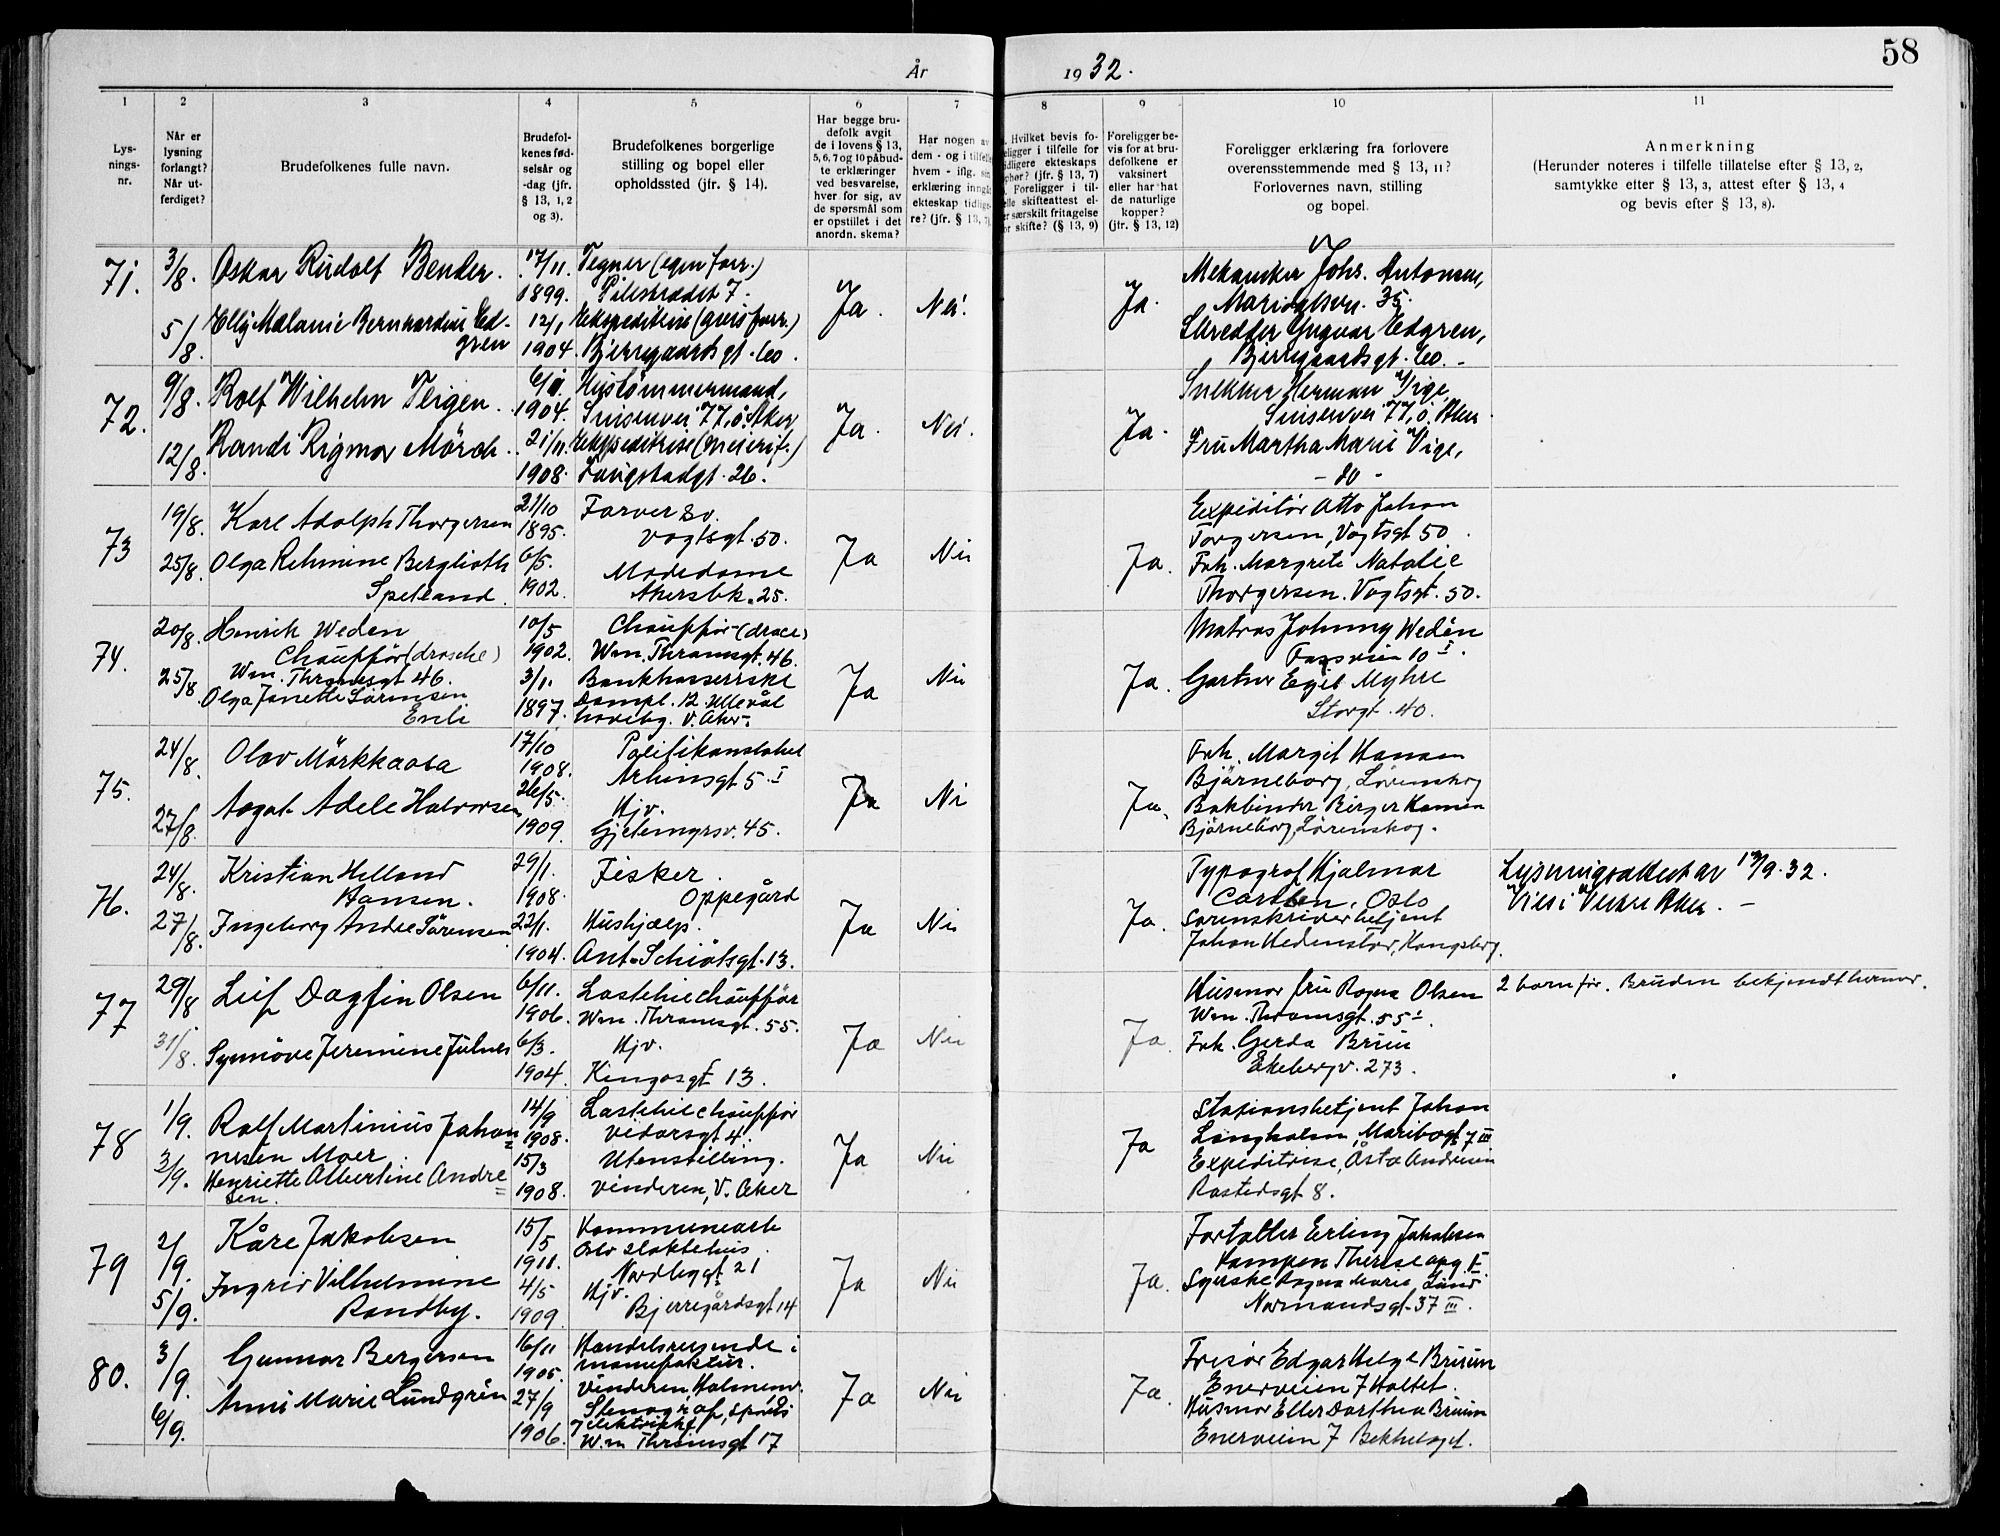 58
År
1932.
1
2
3
4
5
6
7
8
9
10
11
Lys-
nings-
nr.
Når er
lysning
forlangt?
Når ut-
ferdiget?
Brudefolkenes fulle navn.
Brudefol-
kenes fød-
selsår og
-dag (jfr.
§ 13, 1, 2
og 3).
Brudefolkenes borgerlige
stilling og bopel eller
opholdssted (jfr. § 14).
Har begge bru-
defolk avgit
de i lovens § 13,
5, 6, 7 og 10 påbud-
te erklæringer
ved besvarelse,
hver for sig, av
de spørsmål som
er opstillet i det
anordn. skema?
Har nogen av
dem - og i tilfelle
hvem - iflg. sin
erklæring inngått
ekteskap tidlige-
re? (jfr. § 13, 7)
Hvilket bevis fo-
religger i tilfelle for
tidligere ekteskaps
ophør? (jfr. § 13, 7)
Foreligger i til-
felle skifteattest el-
ler særskilt fritagelse
for skifte? (§ 13, 9)
Foreligger be-
vis for at bru-
defolkene er
vaksinert
eller har hat
de naturlige
kopper?
(jfr. § 13, 12)
Foreligger erklæring fra forlovere
overensstemmende med § 13, 11?
Forlovernes navn, stilling
og bopel.
Anmerkning
(Herunder noteres i tilfelle tillatelse efter § 13, 2,
samtykke efter § 13, 3, attest efter § 13, 4
og bevis efter § 13, 8).
71.
3/8.
5/8.
Oskar Rudolf Bender.
Elly Melanie Bernhardine Ed-
gren
17/11.
1899.
12/1
1904.
Tegner (egen forr.)
Pilestrædet 7.
Ekspeditrise (avis forr.)
Bjerregaards gt. 60.
Ja.
Nei.
Ja.
Mekaniker Johs. Antonsen,
Maridalsvn. 35.
Skredder Yngvar Edgren,
Bjerregaardsgt. 60.
72.
9/8.
12/8.
Rolf Wilhelm Teigen.
Randi Rigmor Mörch.
1904.
21/11.
1908.
Hustömmermand,
Sinsenvei 77, Ö. Aker
Ekspeditrise (meierif.)
Fougstadgt. 26.
Ja.
Nei.
Ja.
Snekker Herman Vige,
Sinsenvei 77, Ö. Aker.
Fru Martha Marie Vige,
- do -
73
19/8.
25/8.
Karl Adolph Thorgersen
Olga Rehmine Berglioth
Spetland.
21/10
1895.
6/5.
1902.
Farver sv.
Vogtsgt. 50.
Modedame
Akersbk. 25.
Ja
Nei
Ja.
Expeditör Otto Johan
Torgersen, Vogtsgt 50.
Frk. Margrete Natalie
Thorgersen. Vogtsgt. 50.
74.
20/8.
25/8
Henrik Weden
Chauffför (drosche)
Wm. Thranesgt 46.
Olga Janette Sörensen
Enli
10/5
1902.
3/11.
1897.
Chauffför (drosch)
Wm. Thranesgt. 46.
Bankkasserske
Dampl. B. Ullevål
haveby. V. Aker.
Ja
Nei
Ja.
Matros Johnny Wedén
10 I.
Gartner Egil Myhre
Storgt. 40.
75.
24/8.
27/8.
Olav Mörkkaasa
Aagot Adele Halvorsen
17/10
1908.
26/5.
1909.
Politikonstabel
gt 5 I
Hjv.
Gjetemyrsv. 45.
Ja
Nei
Ja.
Frk. Margit Hansen
Björneborg, Lörenskog
Bokbinder Birger Hansen
Björneborg, Lörenskog.
76.
24/8.
27/8.
Kristian Helland
Hansen.
Ingeborg Andre Sörensen
29/1.
1908.
22/1.
1904.
Fisker.
Oppegård
Hushjælp.
Ant. Schiötsgt. 13.
Ja
Nei
Ja.
Typograf Hjalmar
Carlsen, Oslo
Sorenskriverbetjent
Johan Hedenstad, Kongsberg.
Lysningsattest av 13/9.32.
Viet i Vestre Aker. -
77
29/8
31/8.
Leif Dagfin Olsen
Synnöve Jeremine Julnes
6/11.
1906.
6/3.
1904.
Lastebilchauffför
Wm. Thranesgt. 55.
Hjv.
Kingosgt 13.
Ja
Nei
Ja.
Husmor fru Ragna Olsen
Wm. Thranesgt. 55 I.
Frk. Gerda Bruun
Ekebergv. 273.
2 barn før. Bruden bekjendt herover.
78
1/9.
3/9.
Rolf Martinius Johan=
nesen Moer.
Henriette Albertine Andre=
sen.
14/9
1908.
15/3
1908.
Lastebilchauffför
Vidarsgt 4.
Uten stilling.
Vinderen, V. Aker
Ja
Nei
Ja
Stasjonsbetjent Johan
Langholm, Maribogt 7 III
Expeditrise, Åsta Andresen
Rostedsgt 8.
79
2/9.
5/9.
Kåre Jakobsen
Ingrid Vilhelmine
Randby.
15/5
1911.
4/5
1909.
Kommunearb
Oslo slaktehus.
Nordbygt 21
Hjv.
Bjerregårdsgt 14
Ja
Nei
Ja.
Forgatter Erling Jakobsen
Kampen Therese opg
Syerske Ragna Marie Lund
Normandsgt. 37 III.
80.
3/9.
6/9.
Gunnar Bergersen
Anni Marie Lundgrén
16/11
1905.
27/9
1906.
Handelsreisende i
manufaktur.
Vinderen, Holmenv.
Stenograf,
elektriske
Wm Thranesgt 17
Ja
Nei
Ja.
Frisör Edgar Helge Bruun
Enerveien 7 Holtet.
Husmor Ellen Dorthea Bruun
Enerveien 7 Bekkelaget.